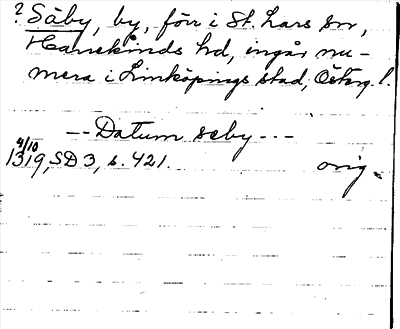 ? Säby, by, förr i St. Lars sn,
Hanekinds hd, ingår nu-
mera i Linköpings stad, Österg. l.
-- Datum seby ---
4/10
1319, SD 3, s. 421. orig.